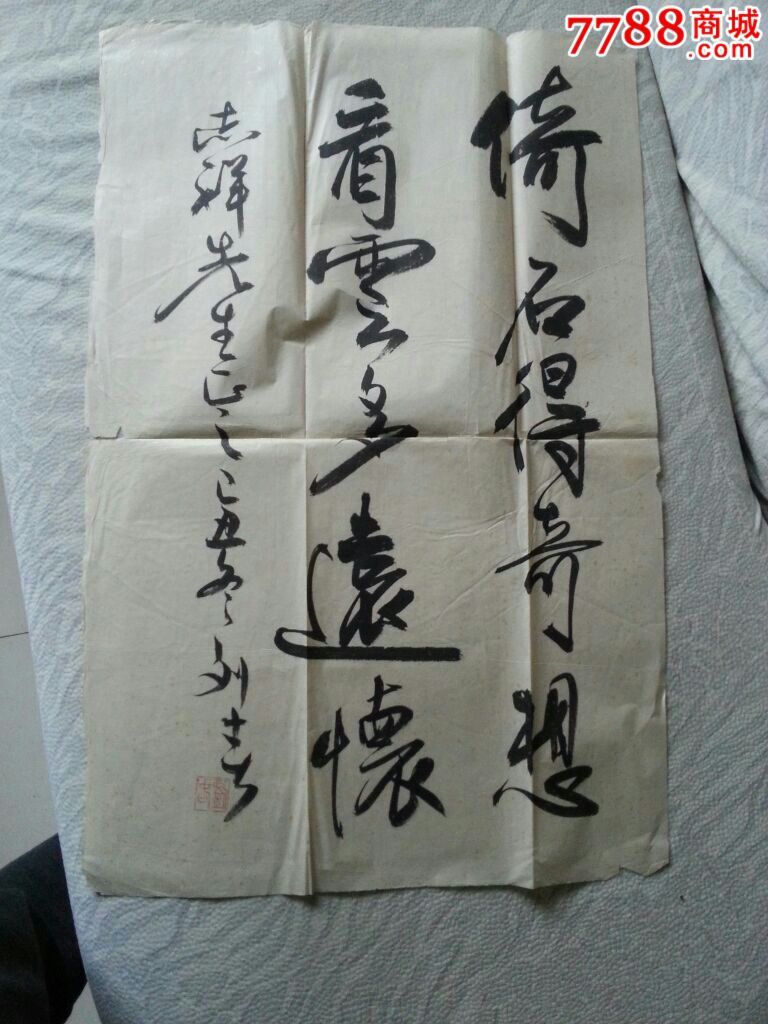 倚石得奇想
看雲多遠懷
吉祥先生正之己丑冬
7788商城
.com